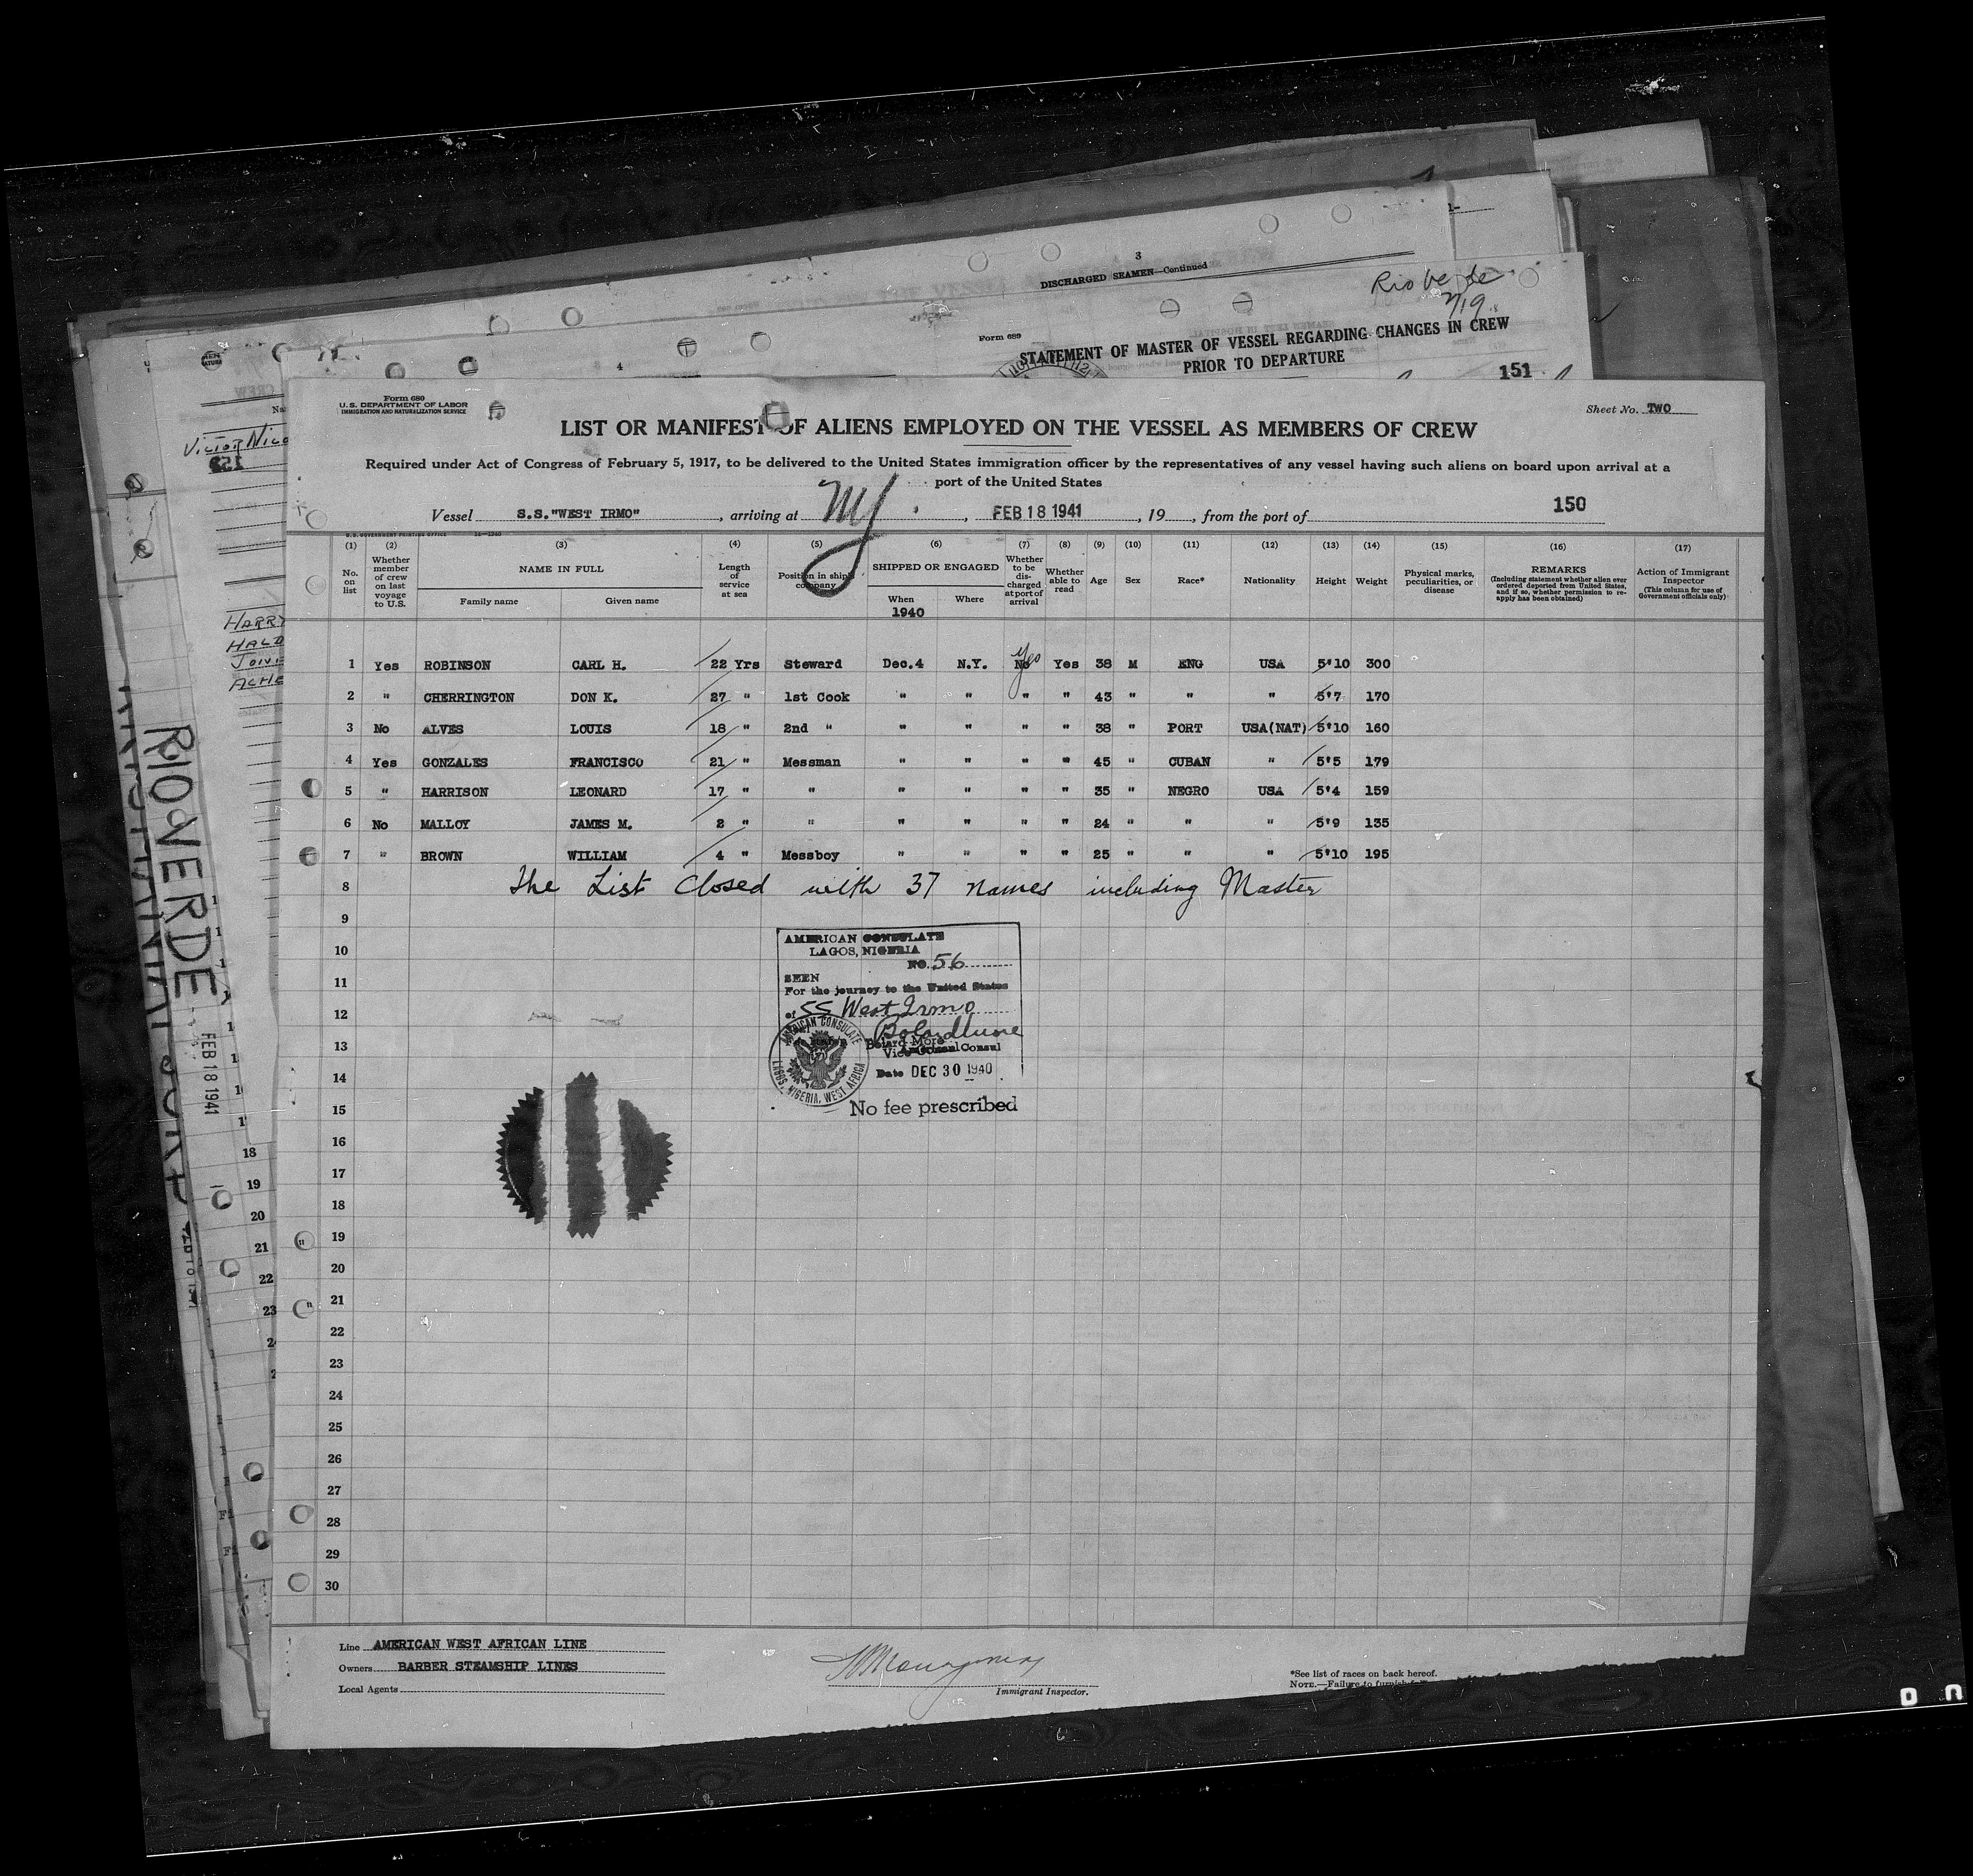 3
DISCHARGED SEAMEN—Continued
Rio Verde
7/19
Form 689
STATEMENT OF MASTER OF VESSEL REGARDING CHANGES IN CREW
PRIOR TO DEPARTURE
151
4
Form 680
U.S. DEPARTMENT OF LABOR
IMMIGRATION AND NATURALIZATION SERVICE
Sheet No. TWO
LIST OR MANIFEST OF ALIENS EMPLOYED ON THE VESSEL AS MEMBERS OF CREW
Required under Act of Congress of February 5, 1917, to be delivered to the United States immigration officer by the representatives of any vessel having such aliens on board upon arrival at a
port of the United States
150
Vessel S.S."WEST IRMO", arriving at NY, FEB 18 1941, 19, from the port of
U.S. GOVERNMENT PRINTING OFFICE
(1) (2) (3) (4) (5) (6) (7) (8) (9) (10) (11) (12) (13) (14) (15) (16) (17)
No. on list
Whether member of crew on last voyage to U.S.
NAME IN FULL
Family name Given name
Length of service at sea
Position in ship's company
SHIPPED OR ENGAGED
When Where
1940
Whether to be discharged at port of arrival
Whether able to read
Age Sex Race* Nationality Height Weight
Physical marks, peculiarities, or disease
REMARKS
(Including statement whether alien ever ordered deported from United States, and if so, whether permission to reapply has been obtained)
Action of Immigrant Inspector
(This column for use of Government officials only)
Yes
1 Yes ROBINSON CARL H. 22 Yrs Steward Dec.4 N.Y. No Yes 38 M ENG USA 5'10 300
2 " CHERRINGTON DON K. 27 " 1st Cook " " " " 43 " " " 5'7 170
3 No ALVES LOUIS 18 " 2nd " " " " " 38 " PORT USA(NAT) 5'10 160
4 Yes GONZALES FRANCISCO 21 " Messman " " " " 45 " CUBAN " 5'5 179
5 " HARRISON LEONARD 17 " " " " " " 35 " NEGRO USA 5'4 159
6 No MALLOY JAMES M. 2 " " " " " " 24 " " " 5'9 135
7 " BROWN WILLIAM 4 " Messboy " " " " 25 " " " 5'10 195
8 The List Closed with 37 names including Master
9
10
11
12
13
14
15
16
17
18
19
20
21
22
23
24
25
26
27
28
29
30
AMERICAN CONSULATE
LAGOS, NIGERIA
NO. 56
SEEN
For the journey to the United States
of SS West Irmo
Vice Consul
Date DEC 30 1940
AMERICAN CONSULATE
LAGOS, NIGERIA, WEST AFRICA
No fee prescribed
Line AMERICAN WEST AFRICAN LINE
Owners BARBER STEAMSHIP LINES
Local Agents
Immigrant Inspector.
*See list of races on back hereof.
NOTE.—Failure to furnish
VICTOR NICO
HARRY
HALD
RIO VERDE
FEB 18 1941
18
19
20
21
22
23